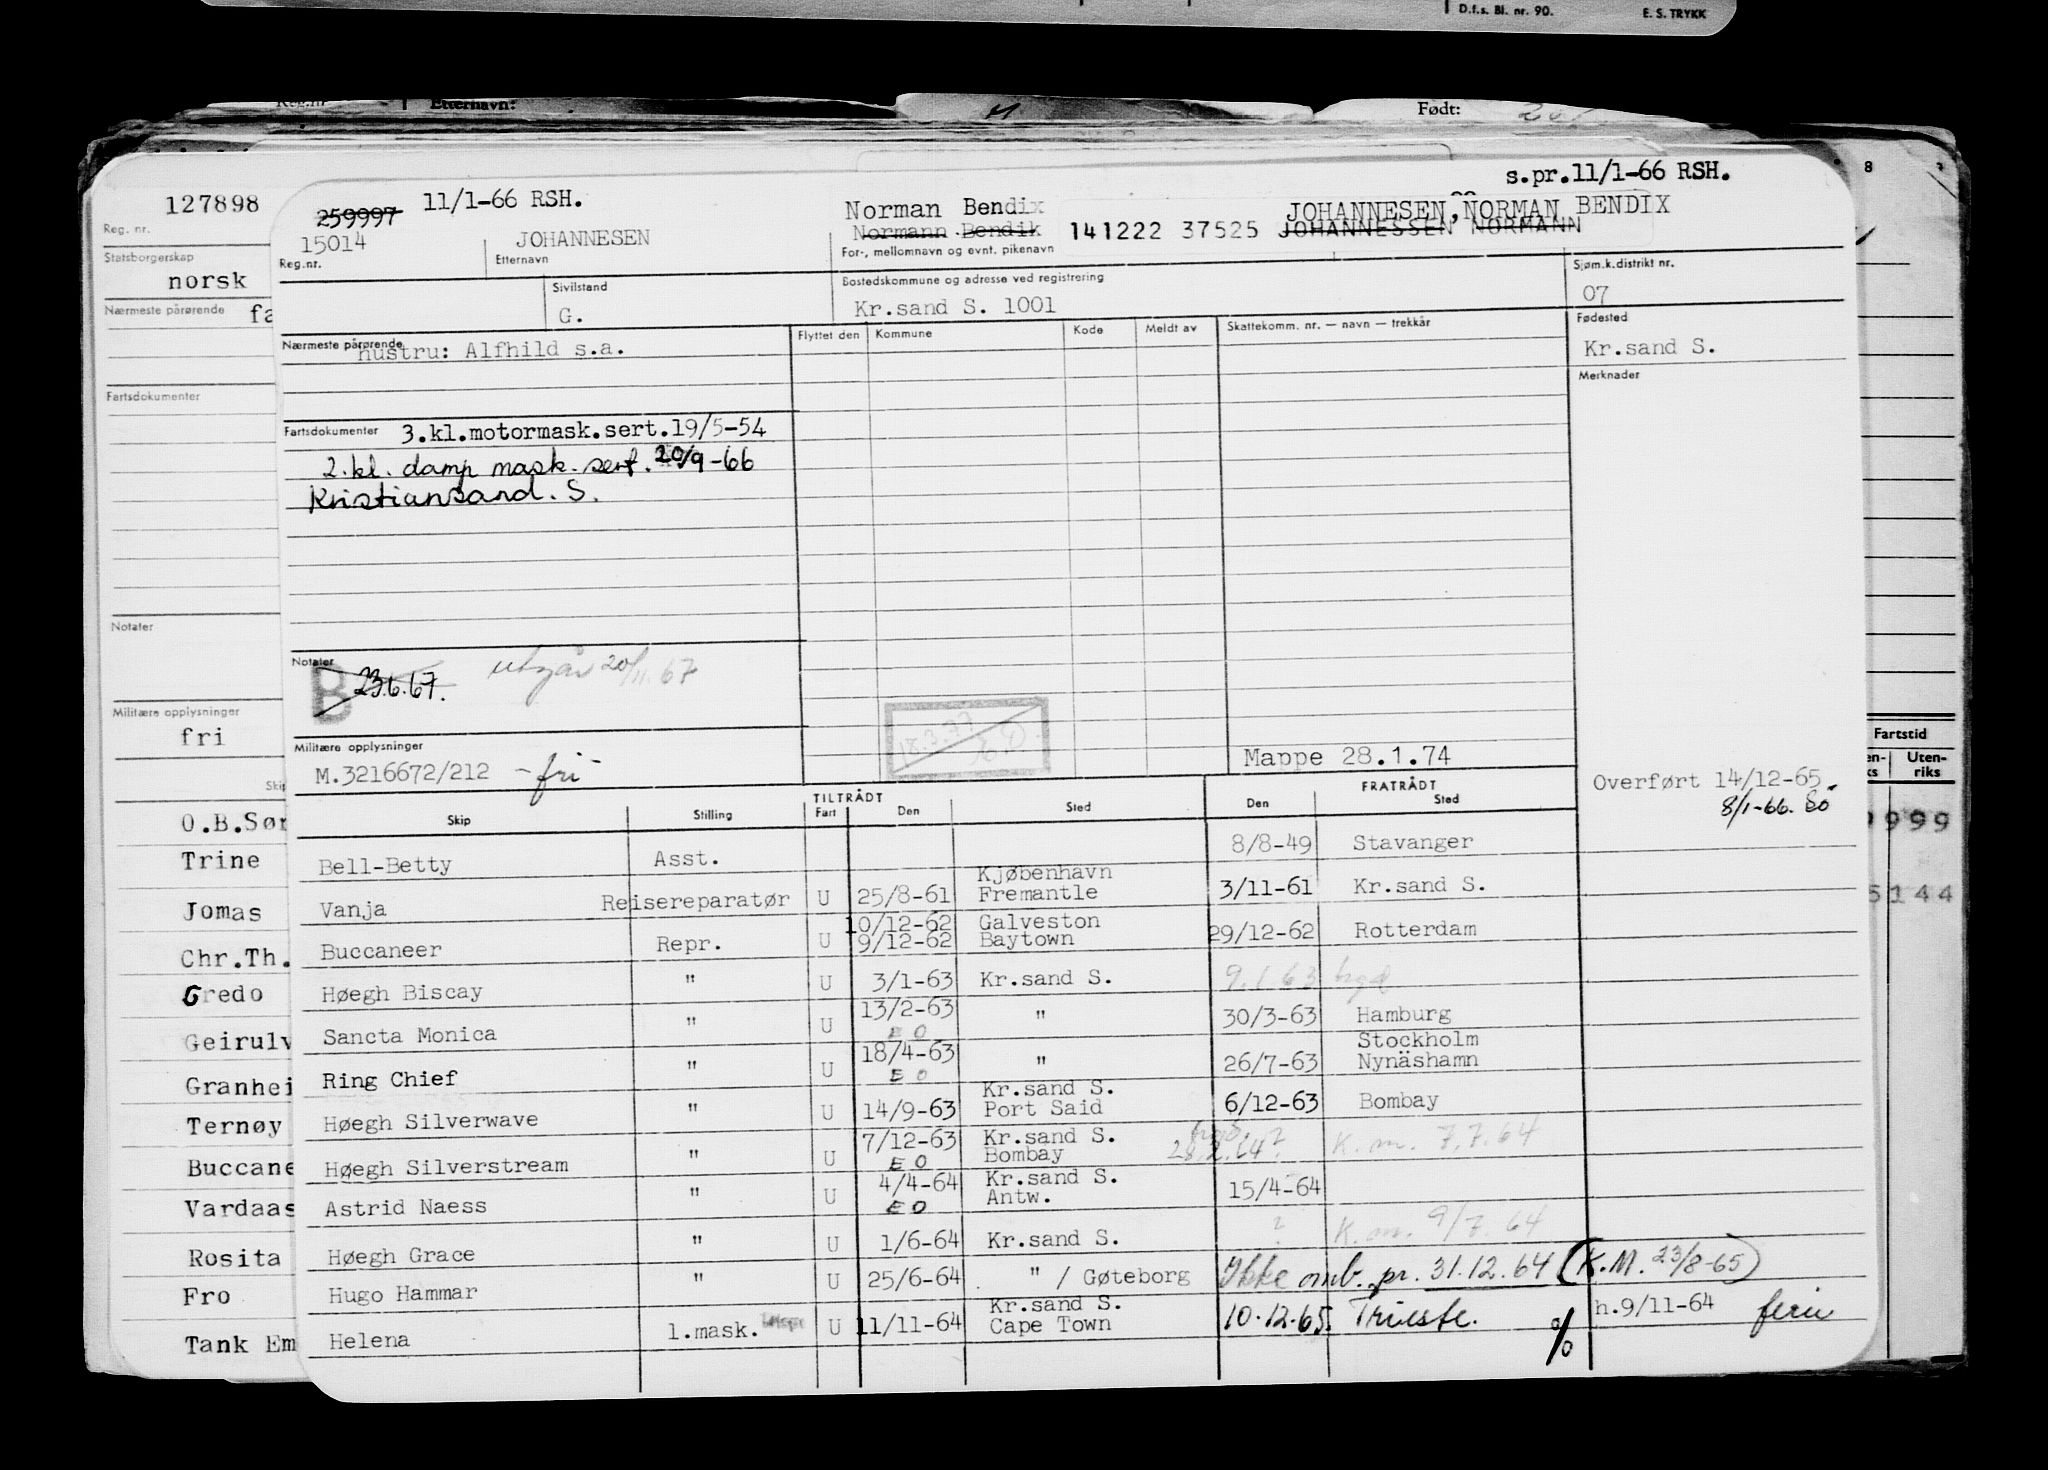 D.f.s. Bl. nr. 90. E. S. TRYKK
Etternavn: Født:
s.pr.11/1-66 RSH.
127898 259997 11/1-66 RSH. Norman Bendix JOHANNESEN, NORMAN BENDIX
15014 JOHANNESEN Normann Bendik 141222 37525 JOHANNESSEN NORMANN
Reg. nr. Reg.nr. Etternavn For-, mellomnavn og evnt. pikenavn
Statsborgerskap Sivilstand Bostedskommune og adresse ved registrering Sjøm.k.distrikt nr.
norsk G. Kr.sand S. 1001 07
Nærmeste pårørende fa
Nærmeste pårørende Flyttet den Kommune Kode Meldt av Skattekomm. nr. — navn — trekkår Fødested
hustru: Alfhild s.a. Kr.sand S.
Merknader
Fartsdokumenter
Fartsdokumenter 3.kl.motormask.sert.19/5-54
2.kl. damp mask. sert. 20/9-66
Kristiansand. S.
Notater
Notater
B 23.6.67. utgår 20/11.67
18.3.77
Militære opplysninger
fri
Militære opplysninger
M.3216672/212 -fri-
Mappe 28.1.74
Overført 14/12-65.
8/1-66. So
Fartstid
Uten-
riks
Skip Stilling TILTRÅDT Fart Den Sted FRATRÅDT Den Sted
Bell-Betty Asst. 8/8-49 Stavanger
Kjøbenhavn
Vanja Reisereparatør U 25/8-61 Fremantle 3/11-61 Kr.sand S.
10/12-62 Galveston
Buccaneer Repr. U 9/12-62 Baytown 29/12-62 Rotterdam
Høegh Biscay " U 3/1-63 Kr.sand S. 9.1.63 hgd
Sancta Monica " U 13/2-63 EO " 30/3-63 Hamburg
Stockholm
Ring Chief " U 18/4-63 EO " 26/7-63 Nynäshamn
Kr.sand S.
Høegh Silverwave " U 14/9-63 Port Said 6/12-63 Bombay
7/12-63 Kr.sand S.
Høegh Silverstream " U EO Bombay 28.2.64? K.m. 7.7.64
4/4-64 Kr.sand S.
Astrid Naess " U EO Antw. 15/4-64
Høegh Grace " U 1/6-64 Kr.sand S. ? K.m. 9/7.64
Hugo Hammar " U 25/6-64 " / Gøteborg Ikke omb. pr. 31.12.64 (K.M. 23/8-65)
Kr.sand S.
Helena 1.mask. U 11/11-64 Cape Town 10.12.65. Trieste. % h.9/11-64 ferie
O.B.Sør
Trine
Jomas
Chr.Th.
Gredo
Geirulv
Granhei
Ternøy
Buccane
Vardaas
Rosita
Fro
Tank Em
999
5144